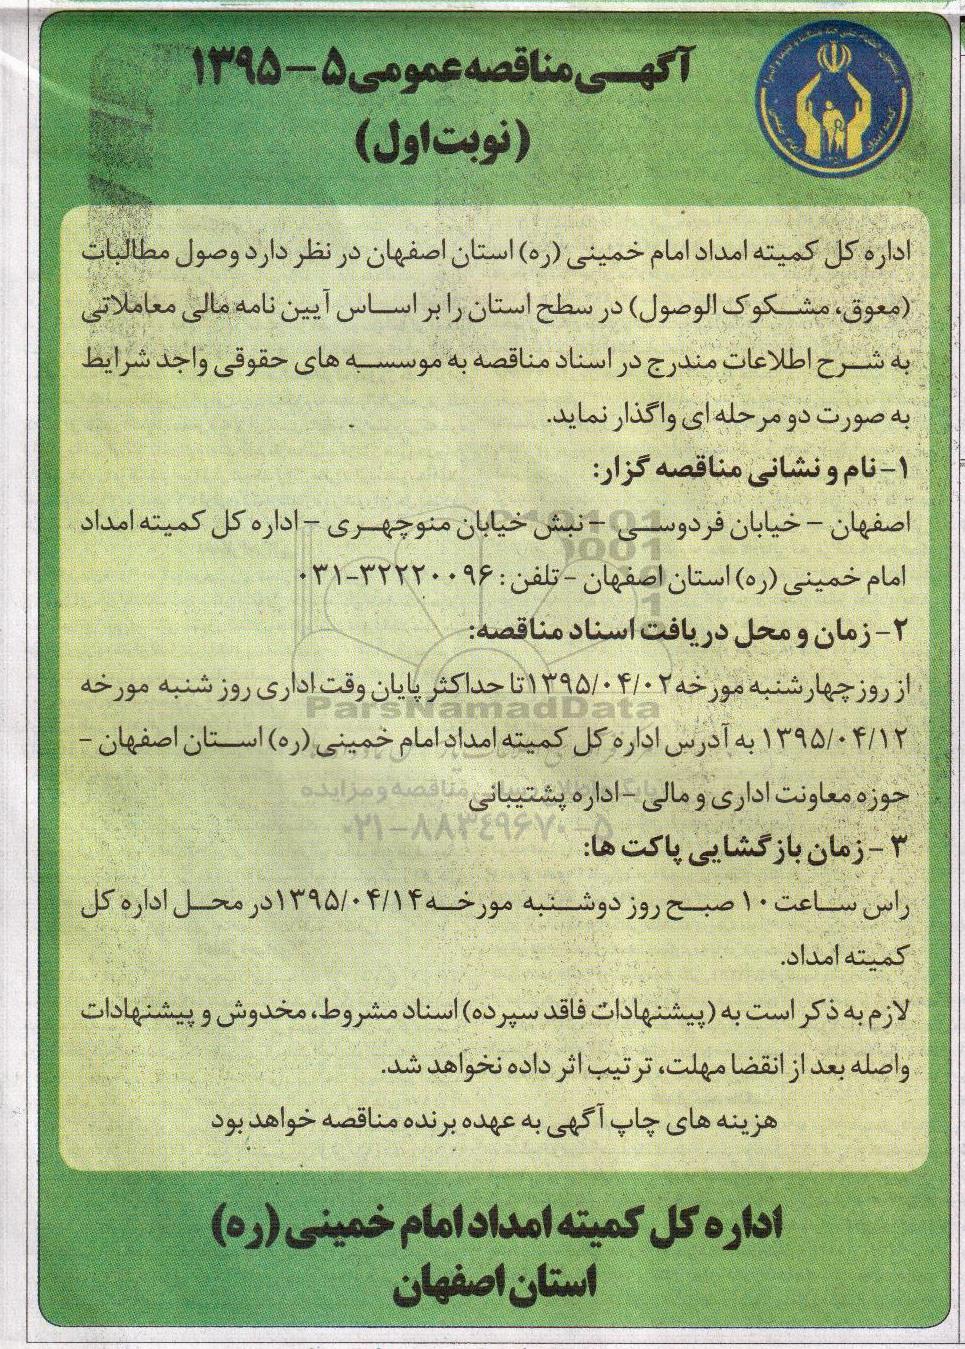 آگهی مناقصه عمومی ۵ – ۱۳۹۵
(نوبت اول)
اداره کل کمیته امداد امام خمینی (ره) استان اصفهان در نظر دارد وصول مطالبات
(معوق، مشکوک الوصول) در سطح استان را بر اساس آیین نامه مالی معاملاتی
به شرح اطلاعات مندرج در اسناد مناقصه به موسسه های حقوقی واجد شرایط
به صورت دو مرحله ای واگذار نماید.
۱- نام و نشانی مناقصه گزار:
اصفهان – خیابان فردوسی – نبش خیابان منوچهری – اداره کل کمیته امداد
امام خمینی (ره) استان اصفهان – تلفن: ۳۲۲۲۰۰۹۶-۰۳۱
۲- زمان و محل دریافت اسناد مناقصه:
از روز چهارشنبه مورخه ۱۳۹۵/۰۴/۰۲ تا حداکثر پایان وقت اداری روز شنبه مورخه
۱۳۹۵/۰۴/۱۲ به آدرس اداره کل کمیته امداد امام خمینی (ره) استان اصفهان –
حوزه معاونت اداری و مالی – اداره پشتیبانی
۳ – زمان بازگشایی پاکت ها:
راس ساعت ۱۰ صبح روز دوشنبه مورخه ۱۳۹۵/۰۴/۱۴ در محل اداره کل
کمیته امداد.
لازم به ذکر است به (پیشنهادات فاقد سپرده) اسناد مشروط، مخدوش و پیشنهادات
واصله بعد از انقضا مهلت، ترتیب اثر داده نخواهد شد.
هزینه های چاپ آگهی به عهده برنده مناقصه خواهد بود
اداره کل کمیته امداد امام خمینی (ره)
استان اصفهان
ParsNamadData
پایگاه اطلاع رسانی مناقصه و مزایده
۰۲۱-۸۸۳۴۹۶۷۰-۵